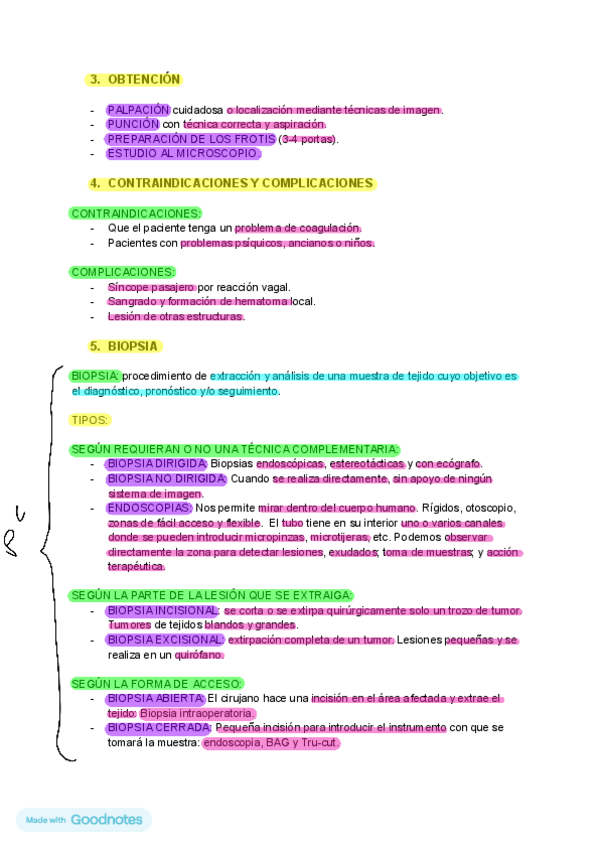 3. OBTENCIÓN
- PALPACIÓN cuidadosa o localización mediante técnicas de imagen.
- PUNCIÓN con técnica correcta y aspiración.
- PREPARACIÓN DE LOS FROTIS (3-4 portas).
- ESTUDIO AL MICROSCOPIO.
4. CONTRAINDICACIONES Y COMPLICACIONES
CONTRAINDICACIONES:
- Que el paciente tenga un problema de coagulación.
- Pacientes con problemas psíquicos, ancianos o niños.
COMPLICACIONES:
- Síncope pasajero por reacción vagal.
- Sangrado y formación de hematoma local.
- Lesión de otras estructuras.
5. BIOPSIA
BIOPSIA: procedimiento de extracción y análisis de una muestra de tejido cuyo objetivo es
el diagnóstico, pronóstico y/o seguimiento.
TIPOS:
SEGÚN REQUIERAN O NO UNA TÉCNICA COMPLEMENTARIA:
- BIOPSIA DIRIGIDA: Biopsias endoscópicas, estereotácticas y con ecógrafo.
- BIOPSIA NO DIRIGIDA: Cuando se realiza directamente, sin apoyo de ningún
sistema de imagen.
- ENDOSCOPIAS: Nos permite mirar dentro del cuerpo humano. Rígidos, otoscopio,
zonas de fácil acceso y flexible. El tubo tiene en su interior uno o varios canales
donde se pueden introducir micropinzas, microtijeras, etc. Podemos observar
directamente la zona para detectar lesiones, exudados; toma de muestras; y acción
terapéutica.
SEGÚN LA PARTE DE LA LESIÓN QUE SE EXTRAIGA:
- BIOPSIA INCISIONAL: se corta o se extirpa quirúrgicamente solo un trozo de tumor.
Tumores de tejidos blandos y grandes.
- BIOPSIA EXCISIONAL: extirpación completa de un tumor. Lesiones pequeñas y se
realiza en un quirófano.
SEGÚN LA FORMA DE ACCESO:
- BIOPSIA ABIERTA: El cirujano hace una incisión en el área afectada y extrae el
tejido: Biopsia intraoperatoria.
- BIOPSIA CERRADA: Pequeña incisión para introducir el instrumento con que se
tomará la muestra: endoscopia, BAG y Tru-cut.
Made with Goodnotes